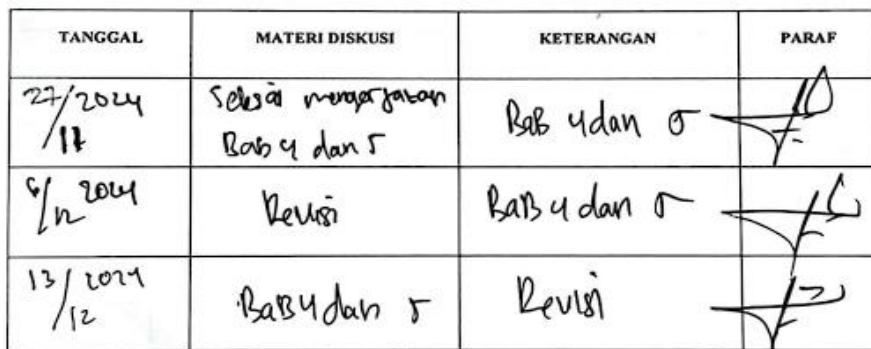 TANGGAL MATERI DISKUSI KETERANGAN PARAF
27/11 2024 Selesai mengerjakan Bab 4 dan 5 BaB 4 dan 5
6/12 2024 Revisi BaB 4 dan 5
13/12 2024 BaB 4 dan 5 Revisi